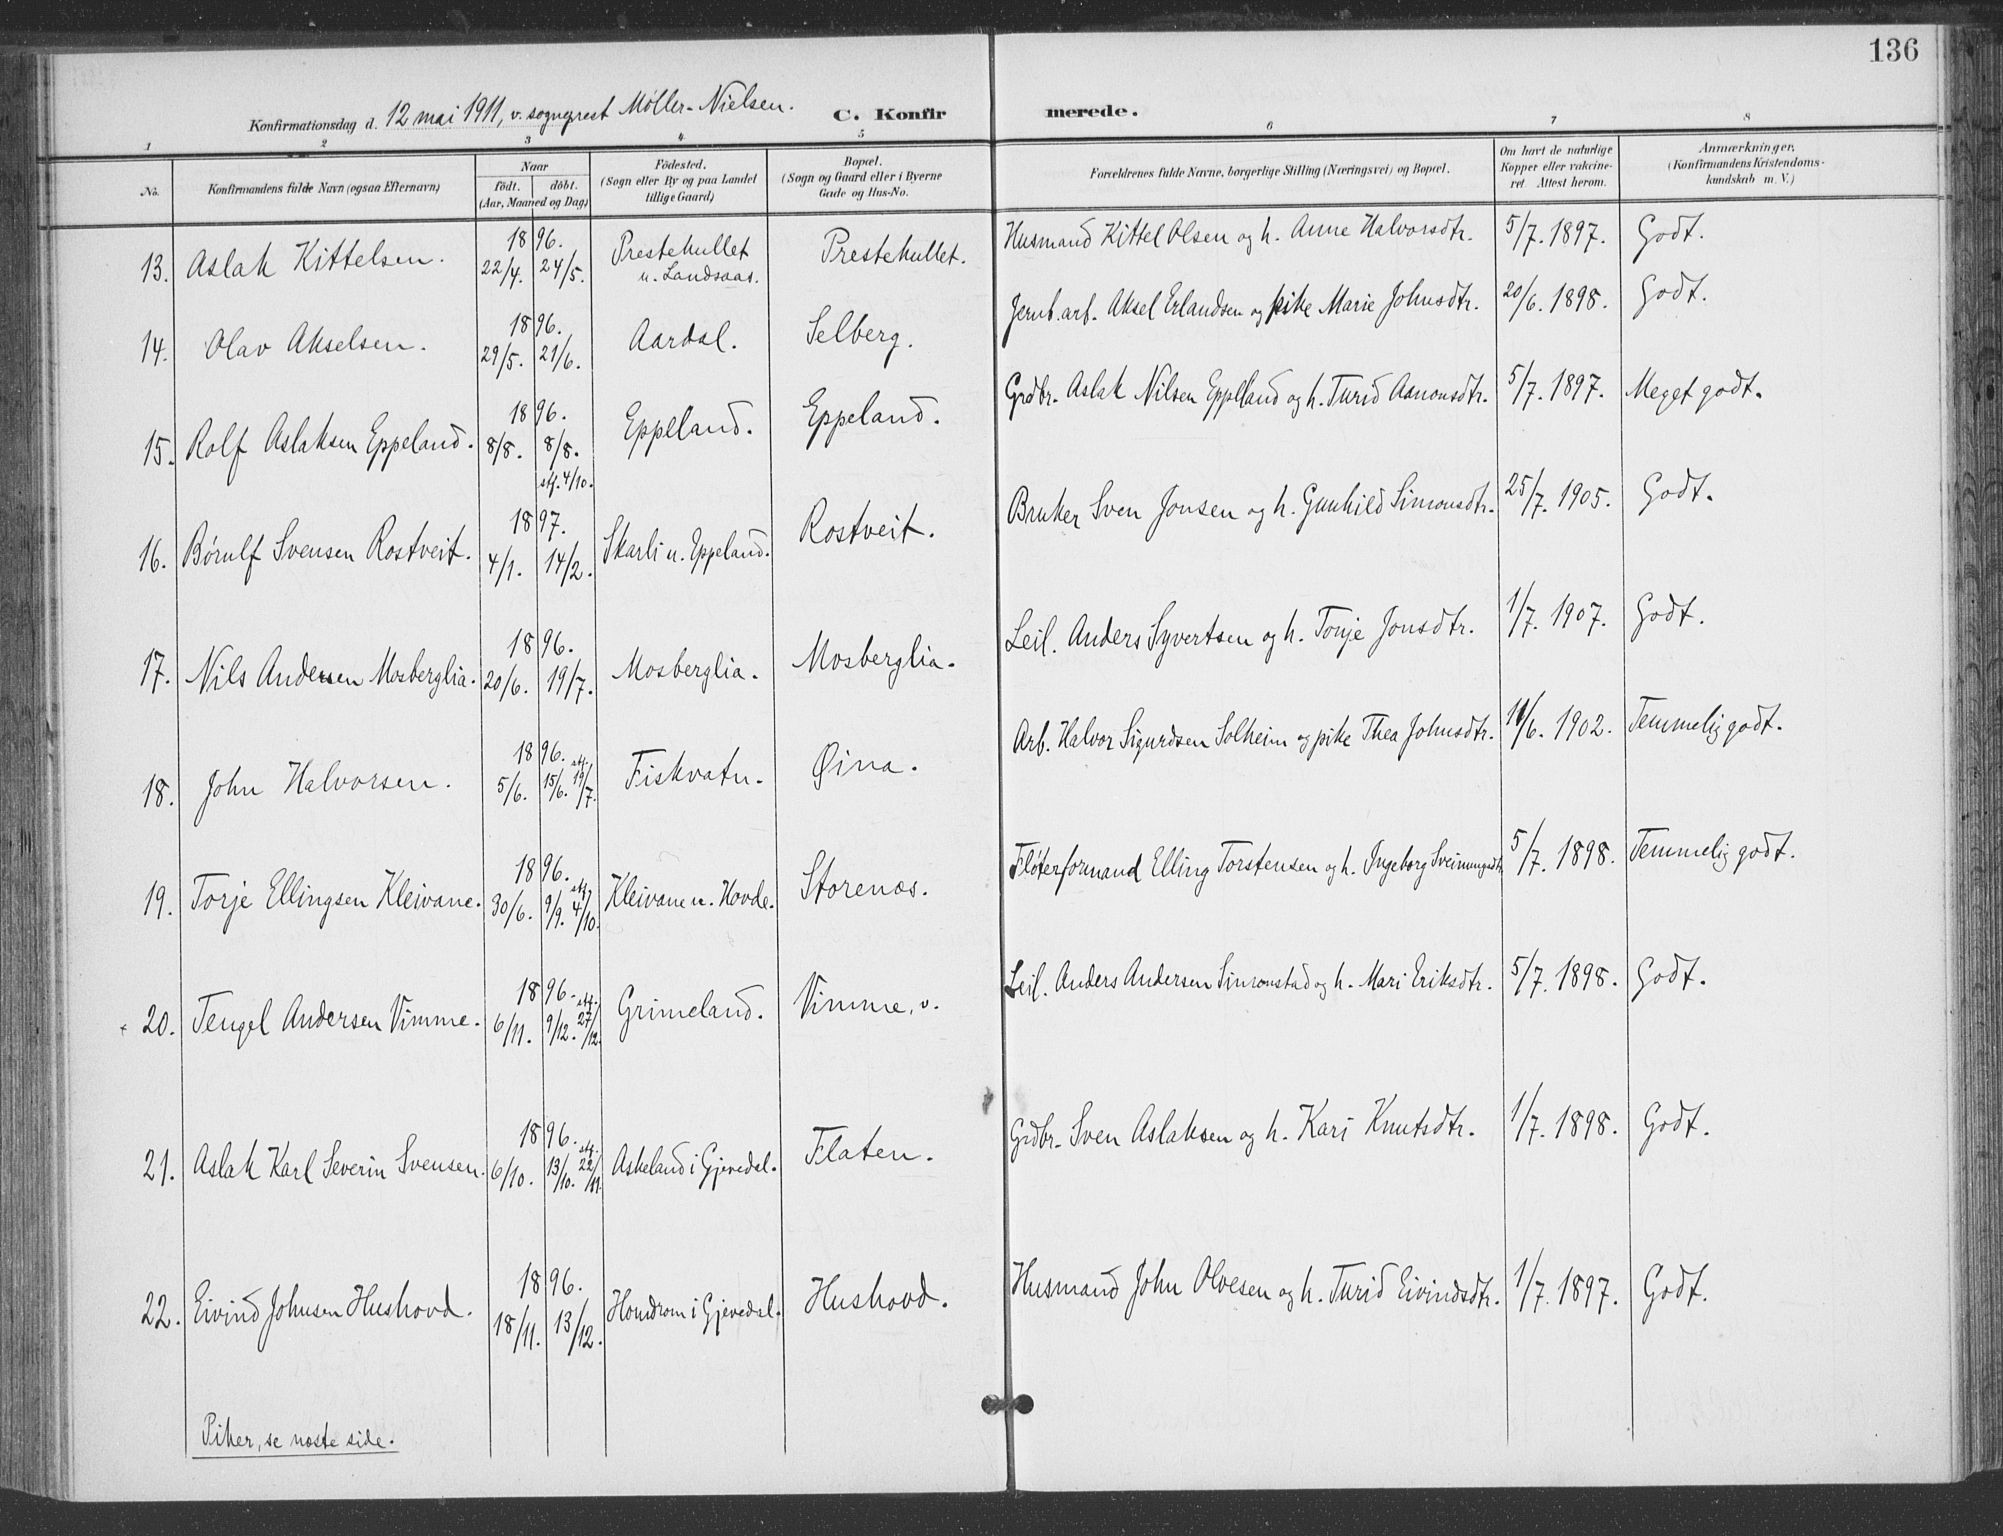 136
Konfirmationsdag d. 12 mai 1911, v. sogneprest Møller-Nielsen. C. Konfirmerede.
1 2 3 4 5 6 7 8
No. Konfirmandens fulde Navn (ogsaa Efternavn) Naar födt. döbt. (Aar, Maaned og Dag) Födested. (Sogn eller By og paa Landet tillige Gaard) Bopæl. (Sogn og Gaard eller i Byerne Gade og Hus-No. Forældrenes fulde Navne, borgerlige Stilling (Næringsvei) og Bopæl. Om havt de naturlige Kopper eller vakcineret. Attest herom. Anmærkninger. (Konfirmandens Kristendomskundskab m. V.)
13. Aslak Kittelsen. 1896. 22/4. 24/5. Prestehullet u. Landsaas. Prestehullet. Husmand Kittel Olsen og h. Anne Halvorsdtr. 5/7. 1897. Godt.
14. Olav Akselsen. 1896. 29/5. 21/6. Aardal. Selberg. Jernb.arb. Aksel Erlandsen og pike Marie Johnsdtr. 20/6. 1898. Godt.
15. Rolf Aslaksen Eppeland. 1896. 8/8. 8/8. stf. 4/10. Eppeland. Eppeland. Grdbr. Aslak Nilsen Eppeland og h. Turid Aanonsdtr. 5/7. 1897. Meget godt.
16. Børulf Svensen Rostveit. 1897. 4/1. 14/2. Skarli u. Eppeland. Rostveit. Bruker Sven Jonsen og h. Gunhild Simonsdtr. 25/7. 1905. Godt.
17. Nils Andersen Mosberglia. 1896. 20/6. 19/7. Mosberglia. Mosberglia. Leil. Anders Syvertsen og h. Tonje Jonsdtr. 1/7. 1907. Godt.
18. John Halvorsen. 1896. 5/6. 15/6. stf. 19/7. Fiskvatn. Øina. Arb. Halvor Sigurdsen Solheim og pike Thea Johnsdtr. 11/6. 1902. Temmelig godt.
19. Torje Ellingsen Kleivane. 1896. 30/6. 9/9. stf. 4/10. Kleivane u. Hovde. Storenæs. Fløterformand Elling Torstensen og h. Ingeborg Sveinungsdtr. 5/7. 1898. Temmelig godt.
20. Tengel Andersen Vimme. 1896. 6/11. 9/12. stf. 27/12. Grimeland. Vimme, v. Leil. Anders Andersen Simonstad og h. Mari Eriksdtr. 5/7. 1898. Godt.
21. Aslak Karl Severin Svensen. 1896. 6/10. 13/10. stf. 22/11. Askeland i Gjevedal. Flaten. Grdbr. Sven Aslaksen og h. Kari Knutsdtr. 1/7. 1898. Godt.
22. Eivind Johnsen Hushovd. 1896. 18/11. 13/12. Homdrom i Gjevedal. Hushovd. Husmand John Olvesen og h. Turid Eivindsdtr. 1/7. 1897. Godt.
Piker, se næste side.